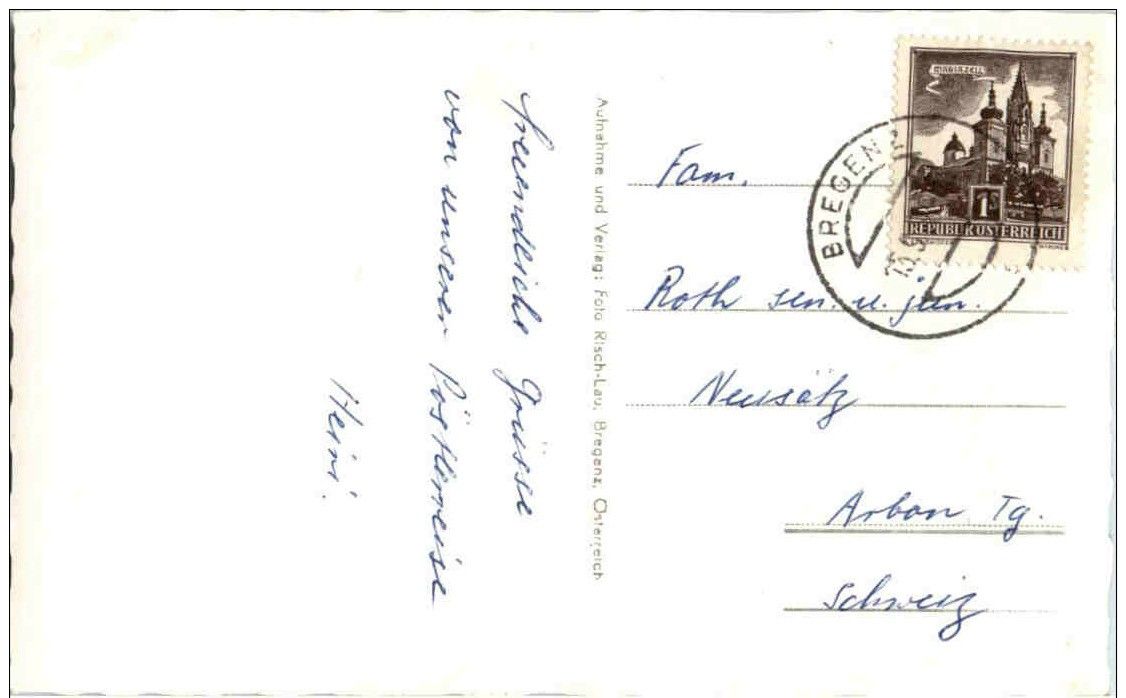 freundliche Grüsse
von unserer Pöstlerreise
Heini.
Aufnahme und Verlag: Foto Risch-Lau, Bregenz, Österreich
MARIAZELL
1S
REPUBLIK ÖSTERREICH
BREGENZ
Fam.
Roth sen. u. jun.
Neusätz
Arbon Tg.
Schweiz